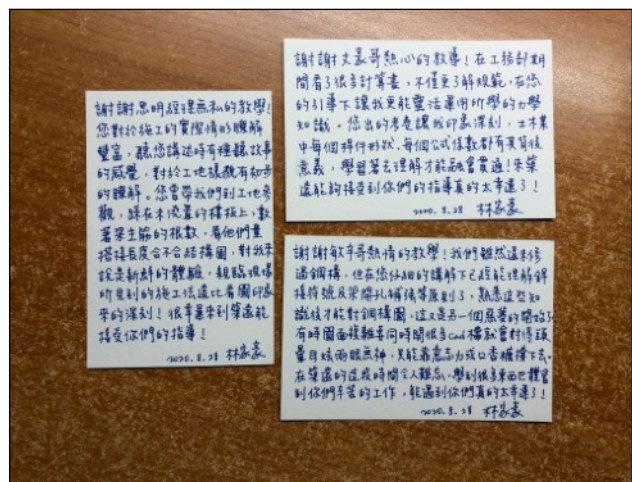 謝謝思明經理無私的教學!
您對於施工的實際情形瞭解
豐富,聽您講述時有種聽故事
的感覺,對於工地樣貌有初步
的瞭解。您曾帶我們到工地參
觀,踩在未澆置的樓板上,數
著梁主筋的根數,看他們量
搭接長度合不合結構圖,對我來
說是新鮮的體驗,親臨現場
所見到的施工法遠比看圖印象
來的深刻!很幸運來到築遠能
接受你們的指導!
2020.8.28 林家豪
謝謝文豪哥熱心的教導!在工務部期
間看了很多計算書,不僅更了解規範,在您
的引導下讓我更能靈活運用所學的力學
知識。您出的考卷讓我印象深刻,土木業
中每個構件形狀、每個公式係數都有其背後
意義,學習著去理解才能融會貫通!來築
遠能夠接受到你們的指導真的太幸運了!
2020.8.28 林家豪
謝謝敏宇哥熱情的教學!我們雖然還未修
過鋼構,但在您仔細的講解下已經能理解銲
接符號及梁開孔補強等原則了,熟悉這些知
識後才能對鋼構圖,這又是另一個惡夢的開始了,
有時圖面複雜且同時間很多cad檔就會對得頭
暈目炫兩眼無神,只能靠意志力或口香糖撐下去。
在築遠的這段時間令人難忘,學到很多東西也體會
到你們辛苦的工作,能遇到你們真的太幸運了!
2020.8.28 林家豪